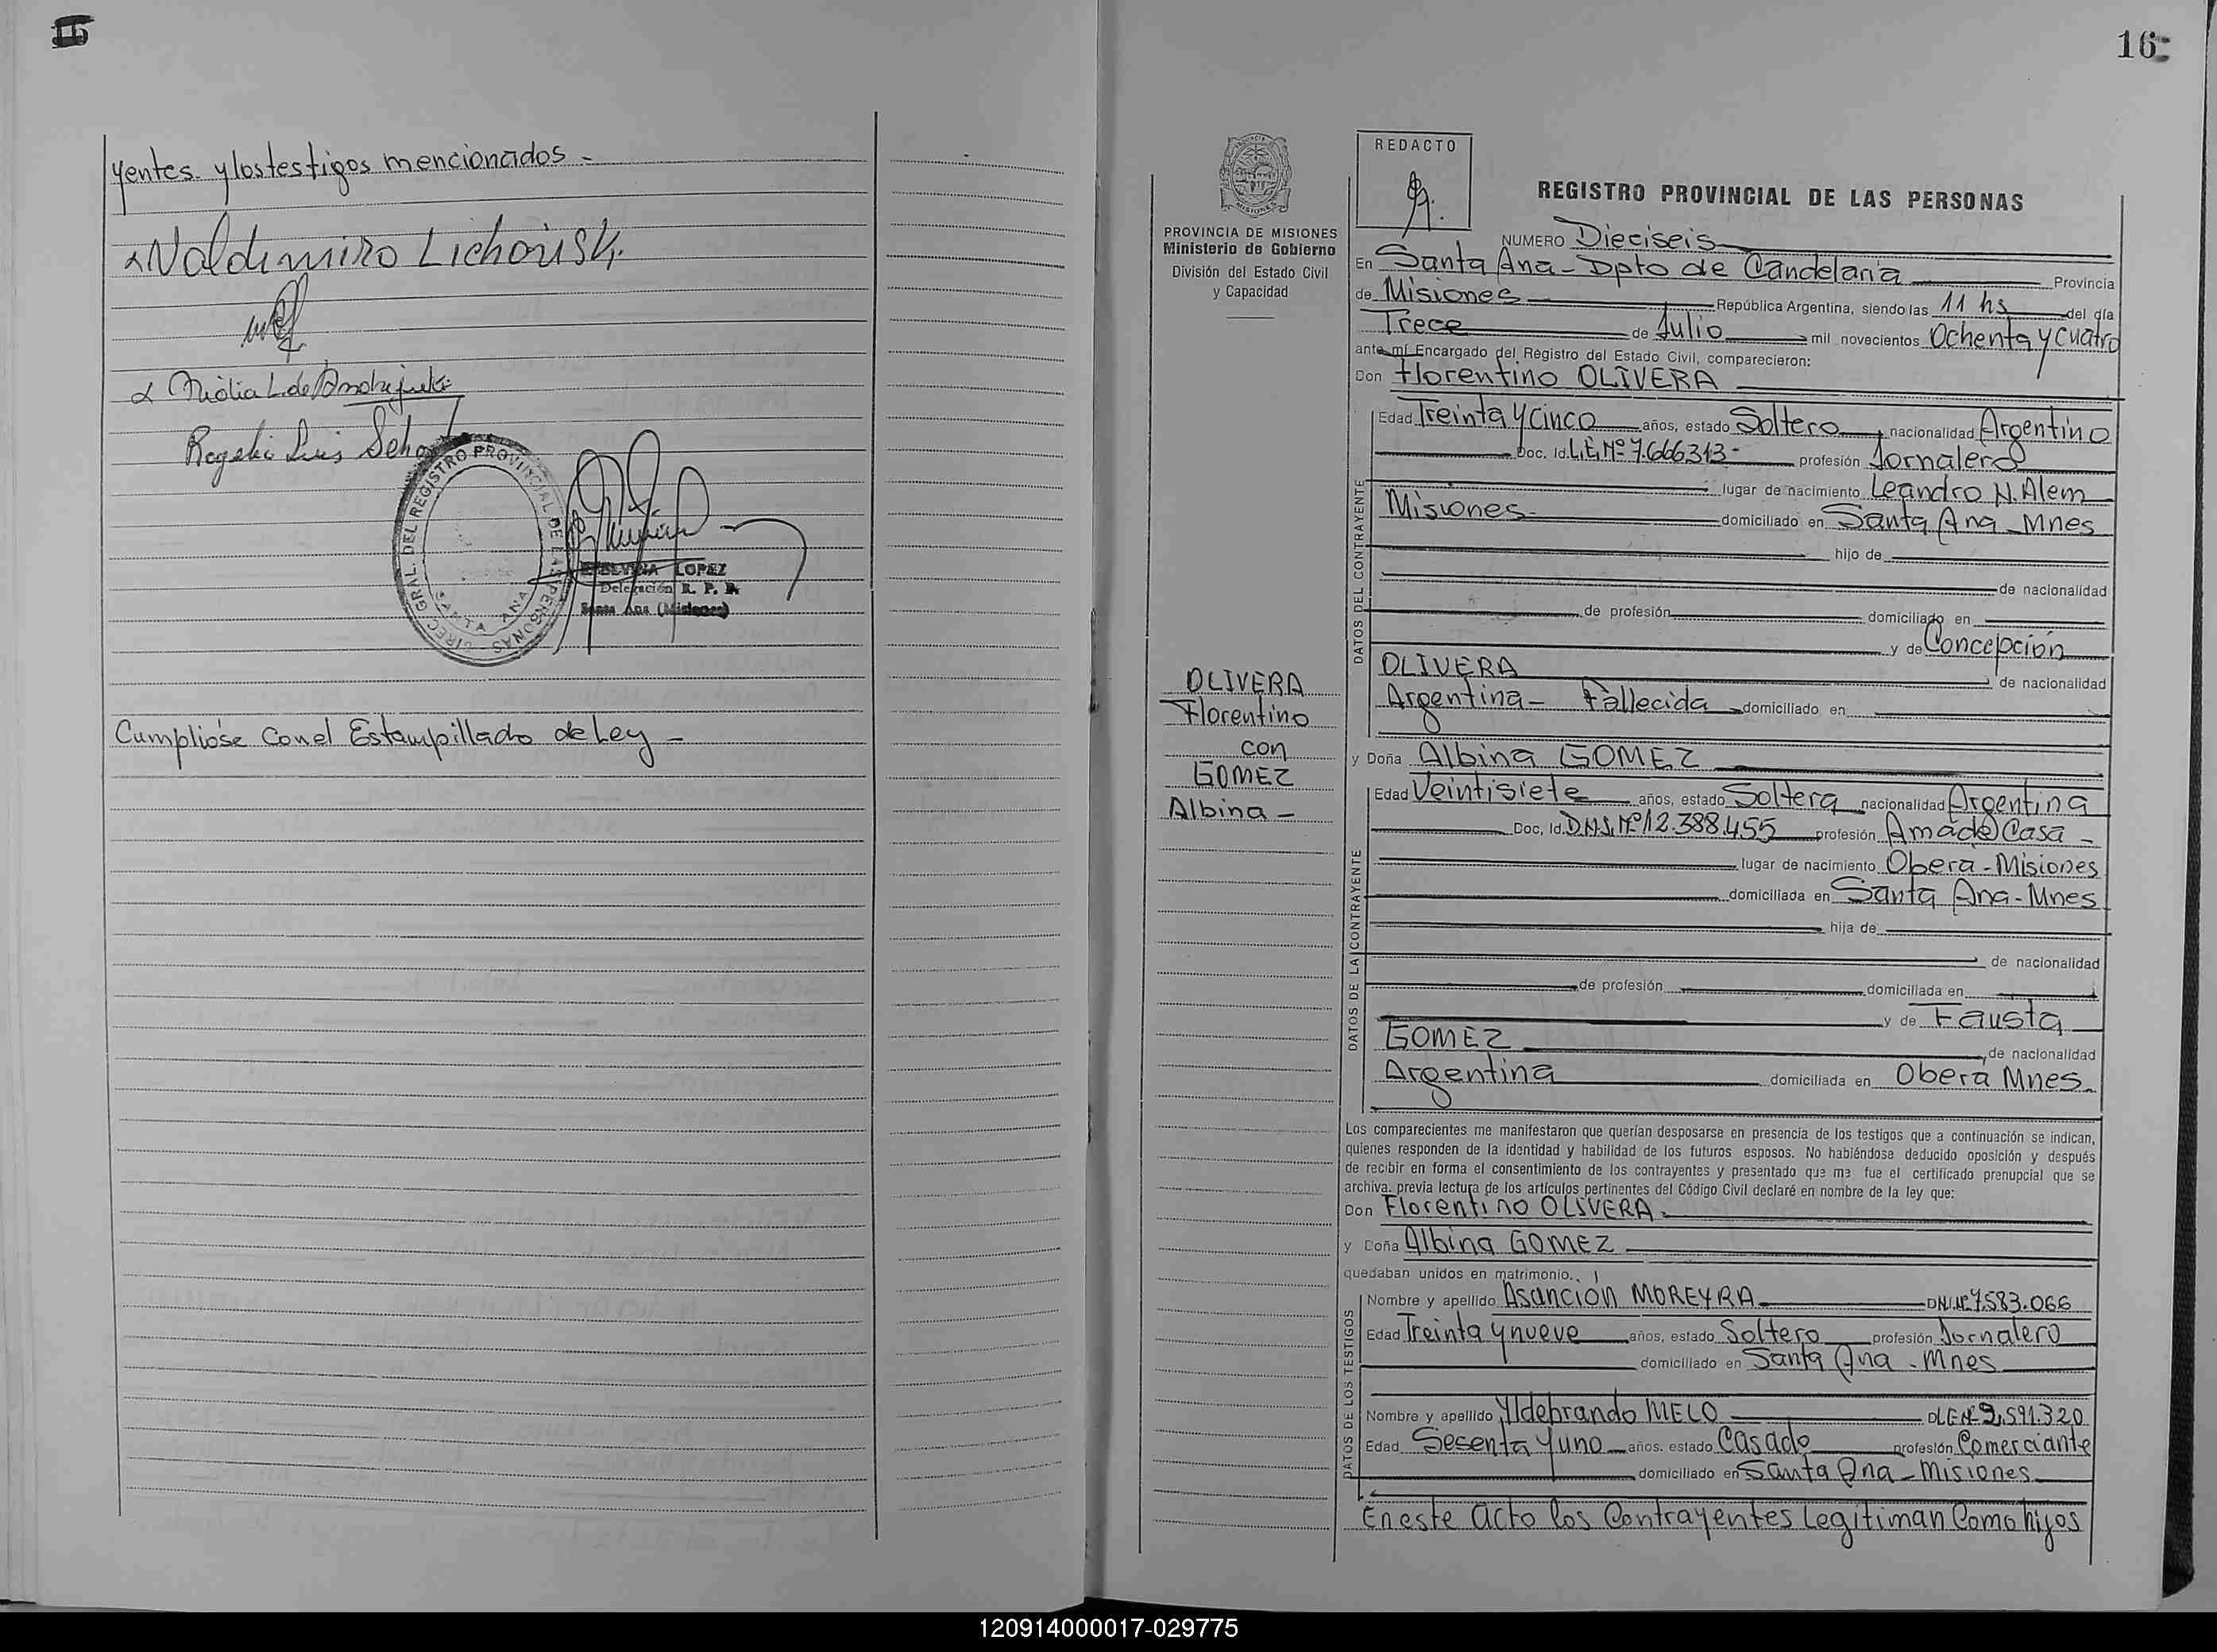 yentes y los testigos mencionados -
Waldimiro Lichouski
Rogelio Luis
DIREC. GRAL. DEL REGISTRO PROVINCIAL DE LAS PERSONAS
SANTA ANA
LOPEZ
Delegación R. P. P.
Santa Ana (Misiones)
Cumpliose Con el Estampillado de Ley -
16
PROVINCIA DE MISIONES
Ministerio de Gobierno
División del Estado Civil
y Capacidad
OLIVERA
Florentino
con
GOMEZ
Albina -
REDACTO
REGISTRO PROVINCIAL DE LAS PERSONAS
NUMERO Dieciseis
En Santa Ana - Dpto de Candelaria Provincia
de Misiones República Argentina, siendo las 11 hs del día
Trece de Julio mil novecientos Ochenta y cuatro
ante mí Encargado del Registro del Estado Civil, comparecieron:
Don Florentino OLIVERA
DATOS DEL CONTRAYENTE
Edad Treinta y cinco años, estado Soltero nacionalidad Argentino
Doc. Id. L.E. Nº 7.666313- profesión Jornalero
lugar de nacimiento Leandro N. Alem
Misiones- domiciliado en Santa Ana - Mnes
hijo de
de nacionalidad
de profesión domiciliado en
y de Concepción
OLIVERA de nacionalidad
Argentina - Fallecida domiciliado en
y Doña Albina GOMEZ
DATOS DE LA CONTRAYENTE
Edad Veintisiete años, estado Soltera nacionalidad Argentina
Doc. Id. D.N.I. Nº 12.388.455 profesión Ama de Casa -
lugar de nacimiento Obera - Misiones
domiciliada en Santa Ana - Mnes
hija de
de nacionalidad
de profesión domiciliada en
y de Fausta
GOMEZ de nacionalidad
Argentina domiciliada en Oberá Mnes.
Los comparecientes me manifestaron que querían desposarse en presencia de los testigos que a continuación se indican,
quienes responden de la identidad y habilidad de los futuros esposos. No habiéndose deducido oposición y después
de recibir en forma el consentimiento de los contrayentes y presentado que me fue el certificado prenupcial que se
archiva, previa lectura de los artículos pertinentes del Código Civil declaré en nombre de la ley que:
Don Florentino OLIVERA
y Doña Albina GOMEZ
quedaban unidos en matrimonio.
DATOS DE LOS TESTIGOS
Nombre y apellido Asunción MOREYRA DNI.Nº 7.583.066
Edad Treinta y nueve años, estado Soltero profesión Jornalero
domiciliado en Santa Ana - Mnes
Nombre y apellido Yldebrando MELO DLENº 2.591.320
Edad Sesenta y uno años. estado Casado profesión Comerciante
domiciliado en Santa Ana - Misiones
En este acto los Contrayentes Legitiman Como hijos
120914000017-029775